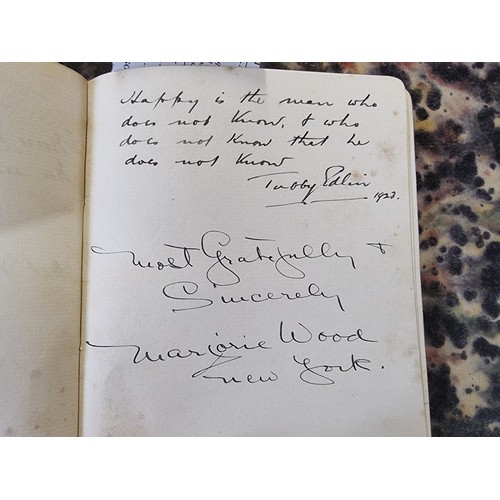 Happy is the man who
does not know, & who
does not know that he
does not know
Tubby Edlin
1923.
Most Gratefully &
Sincerely
Marjorie Wood
New York.